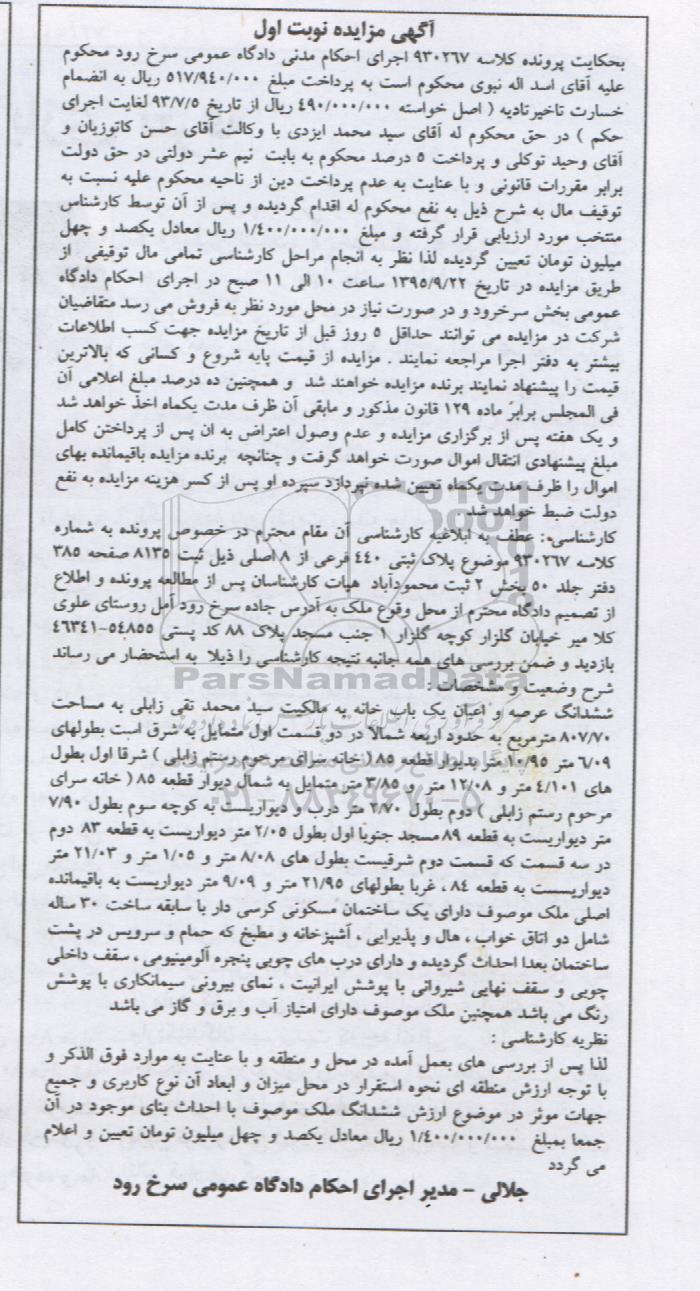 آگهی مزایده نوبت اول
بحکایت پرونده کلاسه ۹۳۰۲۶۷ اجرای احکام مدنی دادگاه عمومی سرخ رود محکوم
علیه آقای اسد اله نبوی محکوم است به پرداخت مبلغ ۵۱۷/۹۴۰/۰۰۰ ریال به انضمام
خسارت تاخیرتادیه ( اصل خواسته ۴۹۰/۰۰۰/۰۰۰ ریال از تاریخ ۹۳/۷/۵ لغایت اجرای
حکم ) در حق محکوم له آقای سید محمد ایزدی با وکالت آقای حسن کاتوزیان و
آقای وحید توکلی و پرداخت ۵ درصد محکوم به بابت نیم عشر دولتی در حق دولت
برابر مقررات قانونی و با عنایت به عدم پرداخت دین از ناحیه محکوم علیه نسبت به
توقیف مال به شرح ذیل به نفع محکوم له اقدام گردیده و پس از آن توسط کارشناس
منتخب مورد ارزیابی قرار گرفته و مبلغ ۱/۴۰۰/۰۰۰/۰۰۰ ریال معادل یکصد و چهل
میلیون تومان تعیین گردیده لذا نظر به انجام مراحل کارشناسی تمامی مال توقیفی از
طریق مزایده در تاریخ ۱۳۹۵/۹/۲۲ ساعت ۱۰ الی ۱۱ صبح در اجرای احکام دادگاه
عمومی بخش سرخرود و در صورت نیاز در محل مورد نظر به فروش می رسد متقاضیان
شرکت در مزایده می توانند حداقل ۵ روز قبل از تاریخ مزایده جهت کسب اطلاعات
بیشتر به دفتر اجرا مراجعه نمایند . مزایده از قیمت پایه شروع و کسانی که بالاترین
قیمت را پیشنهاد نمایند برنده مزایده خواهند شد و همچنین ده درصد مبلغ اعلامی آن
فی المجلس برابر ماده ۱۲۹ قانون مذکور و مابقی آن ظرف مدت یکماه اخذ خواهد شد
و یک هفته پس از برگزاری مزایده و عدم وصول اعتراض به ان پس از پرداختن کامل
مبلغ پیشنهادی انتقال اموال صورت خواهد گرفت و چنانچه برنده مزایده باقیمانده بهای
اموال را ظرف مدت یکماه تعیین شده نپردازد سپرده او پس از کسر هزینه مزایده به نفع
دولت ضبط خواهد شد
کارشناسی : عطف به ابلاغیه کارشناسی آن مقام محترم در خصوص پرونده به شماره
کلاسه ۹۳۰۲۶۷ موضوع پلاک ثبتی ۴۴۰ فرعی از ۸ اصلی ذیل ثبت ۸۱۳۵ صفحه ۳۸۵
دفتر جلد ۵۰ بخش ۲ ثبت محمودآباد هیات کارشناسان پس از مطالعه پرونده و اطلاع
از تصمیم دادگاه محترم از محل وقوع ملک به آدرس جاده سرخ رود آمل روستای علوی
کلا میر خیابان گلزار کوچه گلزار ۱ جنب مسجد پلاک ۸۸ کد پستی ۵۴۸۵۵-۴۶۳۴۱
بازدید و ضمن بررسی های همه جانبه نتیجه کارشناسی را ذیلا به استحضار می رساند
ParsNamadData
شرح وضعیت و مشخصات :
ششدانگ عرصه و اعیان یک باب خانه به مالکیت سید محمد تقی زابلی به مساحت
۸۰۷/۷۰ مترمربع به حدود اربعه شمالا در دو قسمت اول متمایل به شرق است بطولهای
۶/۰۹ متر ۱۰/۹۵ متر بدیوار قطعه ۸۵ ( خانه سرای مرحوم رستم زابلی ) شرقا اول بطول
های ۴/۱۰۱ متر و ۱۲/۰۸ متر و ۳/۸۵ متر متمایل به شمال دیوار قطعه ۸۵ ( خانه سرای
مرحوم رستم زابلی ) دوم بطول ۲/۷۰ متر درب و دیواریست به کوچه سوم بطول ۷/۹۰
۰۲۱-۸۸۳۴۹۶۷۰-۵
متر دیواریست به قطعه ۸۹ مسجد جنوبا اول بطول ۲/۰۵ متر دیواریست به قطعه ۸۳ دوم
در سه قسمت که قسمت دوم شرقیست بطول های ۸/۰۸ متر و ۱/۰۵ متر و ۲۱/۰۳ متر
دیواریسست به قطعه ۸۴ ، غربا بطولهای ۲۱/۹۵ متر و ۹/۰۹ متر دیواریست به باقیمانده
اصلی ملک موصوف دارای یک ساختمان مسکونی کرسی دار با سابقه ساخت ۳۰ ساله
شامل دو اتاق خواب ، هال و پذیرایی . آشپزخانه و مطبخ که حمام و سرویس در پشت
ساختمان بعدا احداث گردیده و دارای درب های چوبی پنجره آلومینیومی ، سقف داخلی
چوبی و سقف نهایی شیروانی با پوشش ایرانیت ، نمای بیرونی سیمانکاری با پوشش
رنگ می باشد همچنین ملک موصوف دارای امتیاز آب و برق و گاز می باشد
نظریه کارشناسی :
لذا پس از بررسی های بعمل آمده در محل و منطقه و با عنایت به موارد فوق الذکر و
با توجه ارزش منطقه ای نحوه استقرار در محل میزان و ابعاد آن نوع کاربری و جمیع
جهات موثر در موضوع ارزش ششدانگ ملک موصوف با احداث بنای موجود در آن
جمعا بمبلغ ۱/۴۰۰/۰۰۰/۰۰۰ ریال معادل یکصد و چهل میلیون تومان تعیین و اعلام
می گردد
جلالی - مدیر اجرای احکام دادگاه عمومی سرخ رود